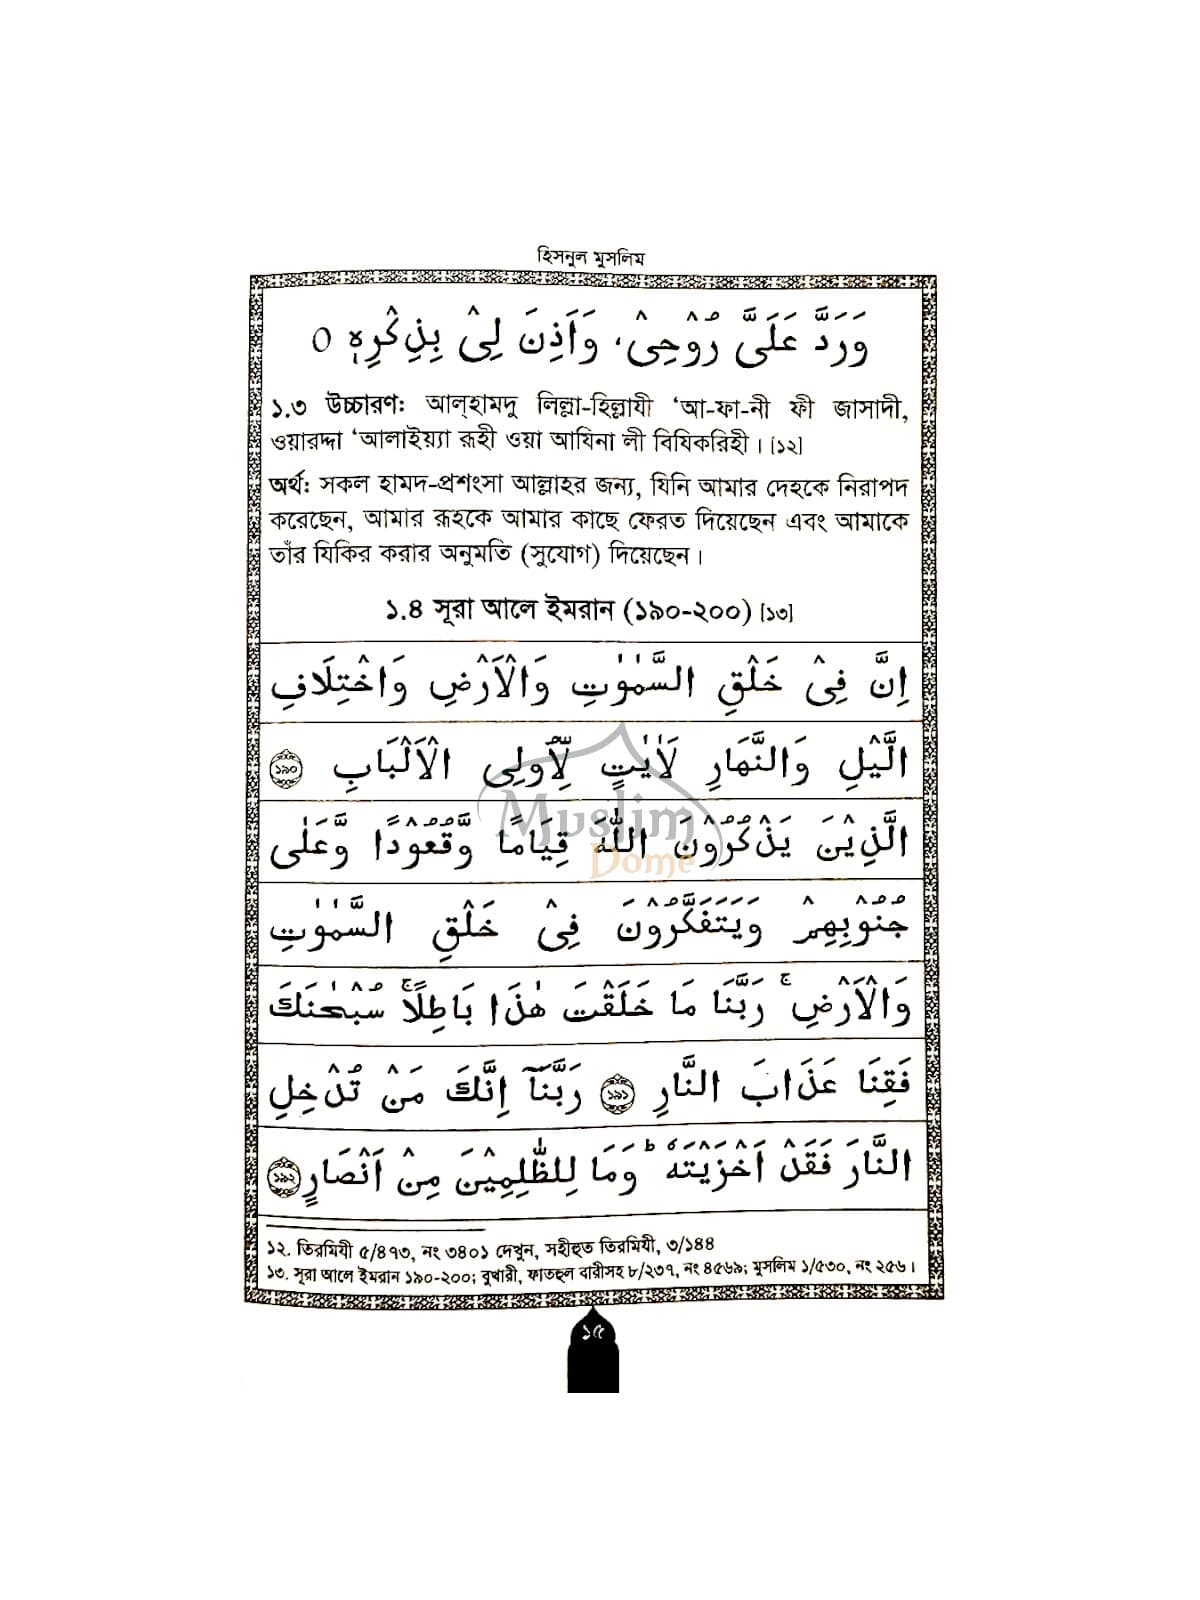 হিসনুল মুসলিম
وَرَدَّ عَلَيَّ رُوْحِىْ، وَاَذِنَ لِىْ بِذِكْرِهٖ ○
১.৩ উচ্চারণ: আল্‌হামদু লিল্লা-হিল্লাযী ‘আ-ফা-নী ফী জাসাদী,
ওয়ারদ্দা ‘আলাইয়্যা রূহী ওয়া আযিনা লী বিযিকরিহী। [১২]
অর্থ: সকল হামদ-প্রশংসা আল্লাহর জন্য, যিনি আমার দেহকে নিরাপদ
করেছেন, আমার রূহকে আমার কাছে ফেরত দিয়েছেন এবং আমাকে
তাঁর যিকির করার অনুমতি (সুযোগ) দিয়েছেন।
১.৪ সূরা আলে ইমরান (১৯০-২০০) [১৩]
اِنَّ فِىْ خَلْقِ السَّمٰوٰتِ وَالْاَرْضِ وَاخْتِلَافِ
الَّيْلِ وَالنَّهَارِ لَاٰيٰتٍ لِّاُولِى الْاَلْبَابِ ১৯০
الَّذِيْنَ يَذْكُرُوْنَ اللّٰهَ قِيَامًا وَّقُعُوْدًا وَّعَلٰى
جُنُوْبِهِمْ وَيَتَفَكَّرُوْنَ فِىْ خَلْقِ السَّمٰوٰتِ
وَالْاَرْضِ ۚ رَبَّنَا مَا خَلَقْتَ هٰذَا بَاطِلًا ۚ سُبْحٰنَكَ
فَقِنَا عَذَابَ النَّارِ ১৯১ رَبَّنَآ اِنَّكَ مَنْ تُدْخِلِ
النَّارَ فَقَدْ اَخْزَيْتَهٗ ؕ وَمَا لِلظّٰلِمِيْنَ مِنْ اَنْصَارٍ ১৯২
Muslim
Dome
১২. তিরমিযী ৫/৪৭৩, নং ৩৪০১ দেখুন, সহীহুত তিরমিযী, ৩/১৪৪
১৩. সূরা আলে ইমরান ১৯০-২০০; বুখারী, ফাতহুল বারীসহ ৮/২৩৭, নং ৪৫৬৯; মুসলিম ১/৫৩০, নং ২৫৬।
১৫